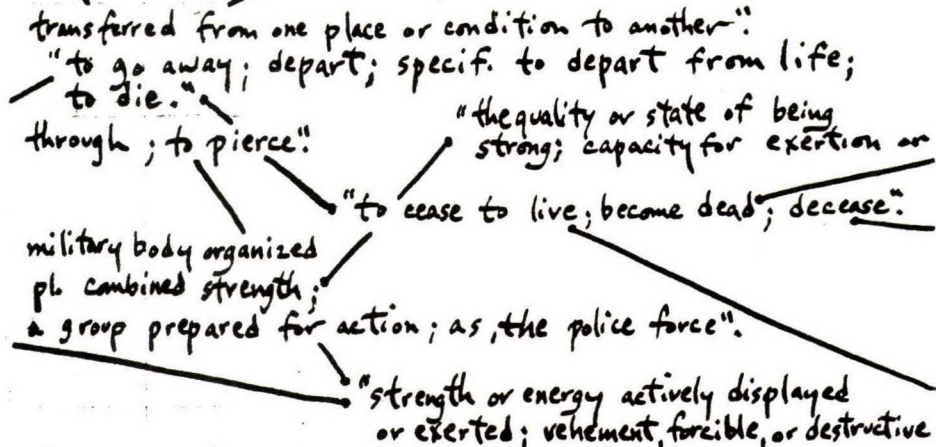 transferred from one place or condition to another".
"to go away; depart; specif. to depart from life;
to die."
through; to pierce".
"the quality or state of being
strong; capacity for exertion or
"to cease to live; become dead"; decease".
military body organized
pl. combined strength;
a group prepared for action; as, the police force".
"strength or energy actively displayed
or exerted; vehement, forcible, or destructive